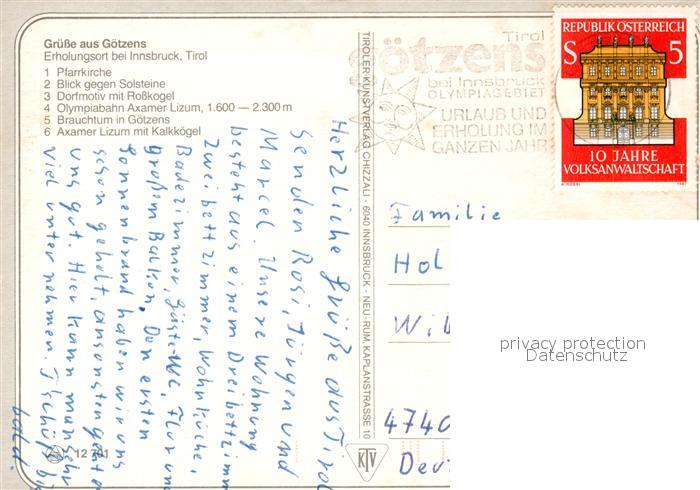 Grüße aus Götzens
Erholungsort bei Innsbruck, Tirol
1 Pfarrkirche
2 Blick gegen Solsteine
3 Dorfmotiv mit Roßkogel
4 Olympiabahn Axamer Lizum, 1.600 — 2.300 m
5 Brauchtum in Götzens
6 Axamer Lizum mit Kalkkögel
Herzliche Grüße aus Tirol
senden Rosi, Jürgen und
Marcel. Unsere Wohnung
besteht aus einem Dreibettzimm
Zweibettzimmer, Wohnküche,
Badezimmer, Gäste-WC, Flur un
großem Balkon. Den ersten
Sonnenbrand haben wir uns
schon geholt, ansonsten geht e
uns gut. Hier kann man sehr
viel unternehmen. Tschüß bis
bald.
12 791
TIROLER KUNSTVERLAG CHIZZALI · 6040 INNSBRUCK - NEU-RUM, KAPLANSTRASSE 10
KTV
Tirol
götzens
bei Innsbruck
OLYMPIAGEBIET
URLAUB UND
ERHOLUNG IM
GANZEN JAHR
REPUBLIK ÖSTERREICH
S 5
10 JAHRE
VOLKSANWALTSCHAFT
1987
Familie
Hol
Wib
4740
Deu
privacy protection
Datenschutz